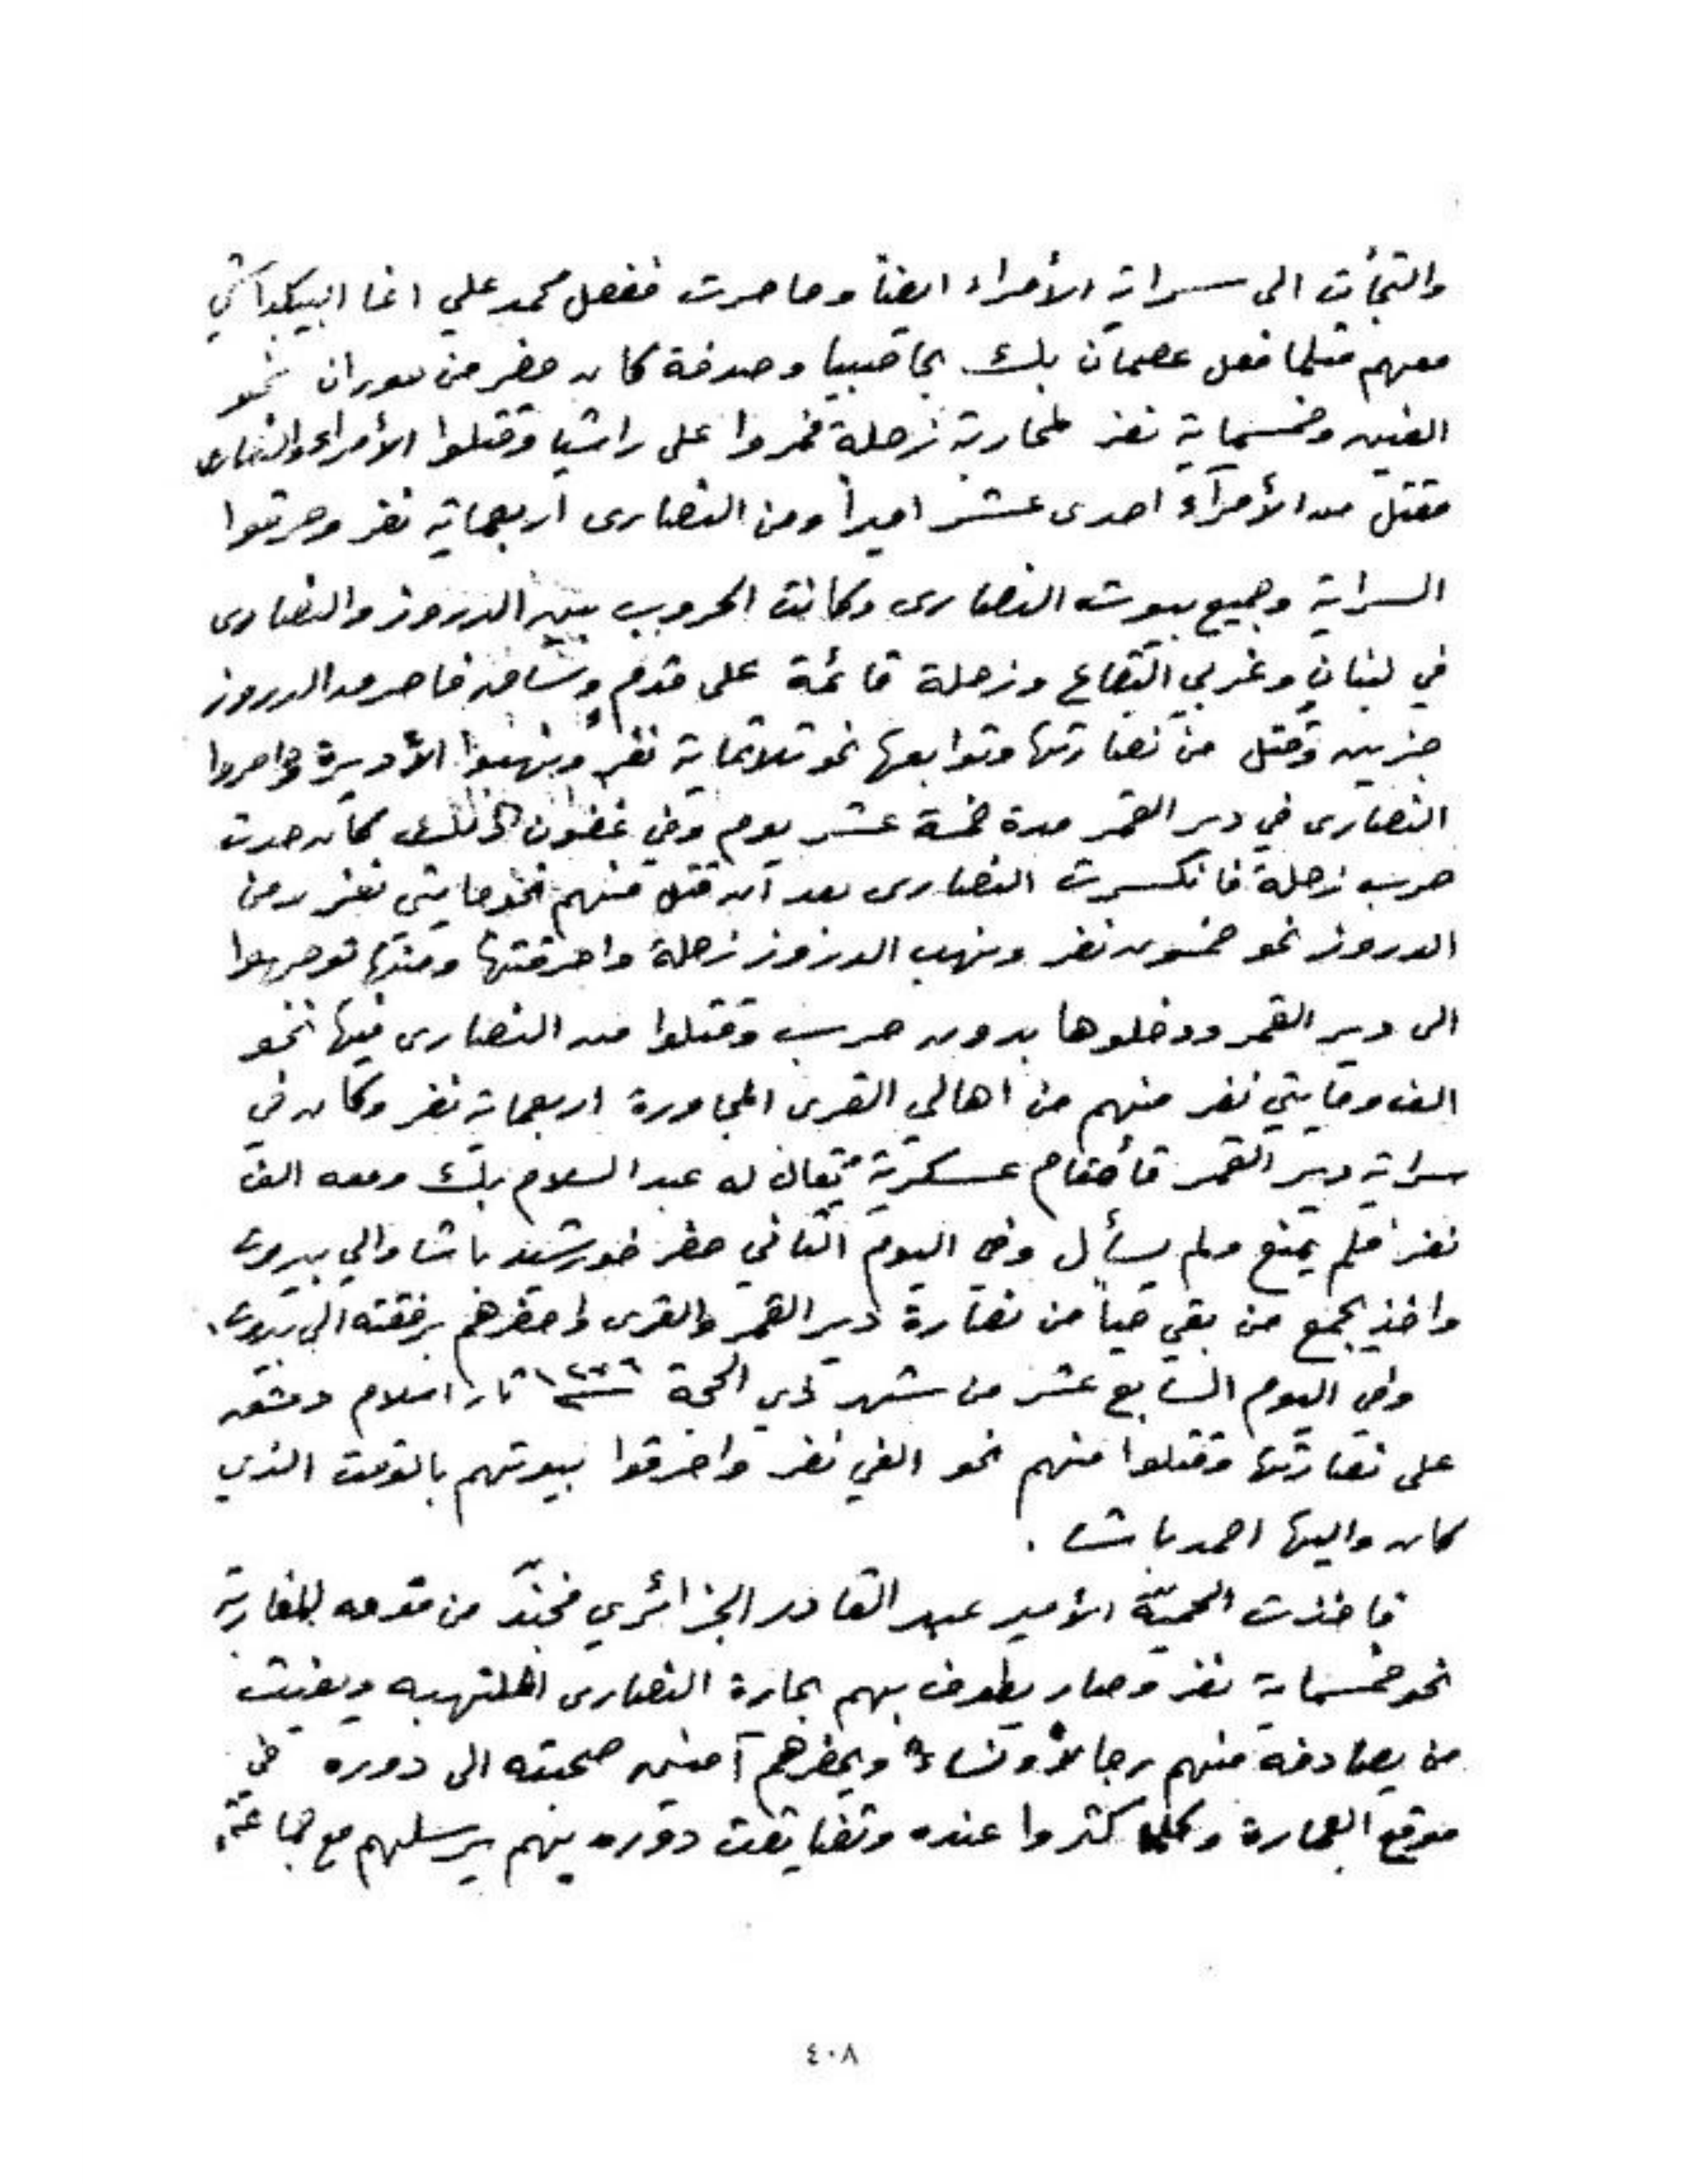 والتجأت الى سراية الأمراء ايضاً وحاصرت ففعل محمد علي اغا البيكباشي
معهم مثلما فعل عصمان بك بحاصبيا وصدفة كان حضر من حوران نحو
الفين وخمسماية نفر لمحاربة زحلة فمروا على راشيا وقتلوا الأمراء والنصارى
فقتل من الأمرآء احدى عشر اميراً ومن النصارى اربعماية نفر وحرقوا
السراية وجميع بيوت النصارى وكانت الحروب بين الدروز والنصارى
في لبنان وغربي البقاع وزحلة قائمة على قدم وساق فاصر من الدروز
جزين وقتل من نصارتها وتوابعها نحو ثلاثماية نفر ونهبوا الأديرة وحاصروا
النصارى في دير القمر مدة خمسة عشر يوم وفي غضون ذلك كان حدث
حرب زحلة فانكسرت النصارى بعد ان قتل منهم نحو مايتي نفر ومن
الدروز نحو خمسون نفر ونهب الدزوز زحلة واحرقتها ومنها توجهوا
الى دير القمر ودخلوها بدون حرب وقتلوا من النصارى فيها نحو
الف ومايتي نفر منهم من اهالي القرى المجاورة اربعماية نفر وكان في
سراية دير القمر قائمقام عسكرية يقال له عبد السلام بك ومعه الف
نفر فلم يمنع ولم يسأل وفي اليوم الثاني حضر خورشيد باشا والي بيروت
واخذ بجمع من بقي حياً من نصارة دير القمر والقرى واحضرهم برفقته الى بيروت.
وفي اليوم السابع عشر من شهر ذي الحجة ١٢٧٦ ثار اسلام دمشق
على نصارتها وقتلوا منهم نحو الفي نفر واحرقوا بيوتهم بالوقت الذي
كان واليها احمد باشا .
فاخذت الحميّة الأمير عبد القادر الجزائري فجنّد من قومه المغاربة
نحو خمسماية نفر وصار يطوف بهم بحارة النصارى الملتهبه ويغيث
من يصادفه منهم رجالاً ونساءً ويحضرهم آمنين صحبته الى دوره في
موقع العمارة وكلما كثروا عنده وتضايقت دوره بهم يرسلهم مع جماعته
٤٠٨